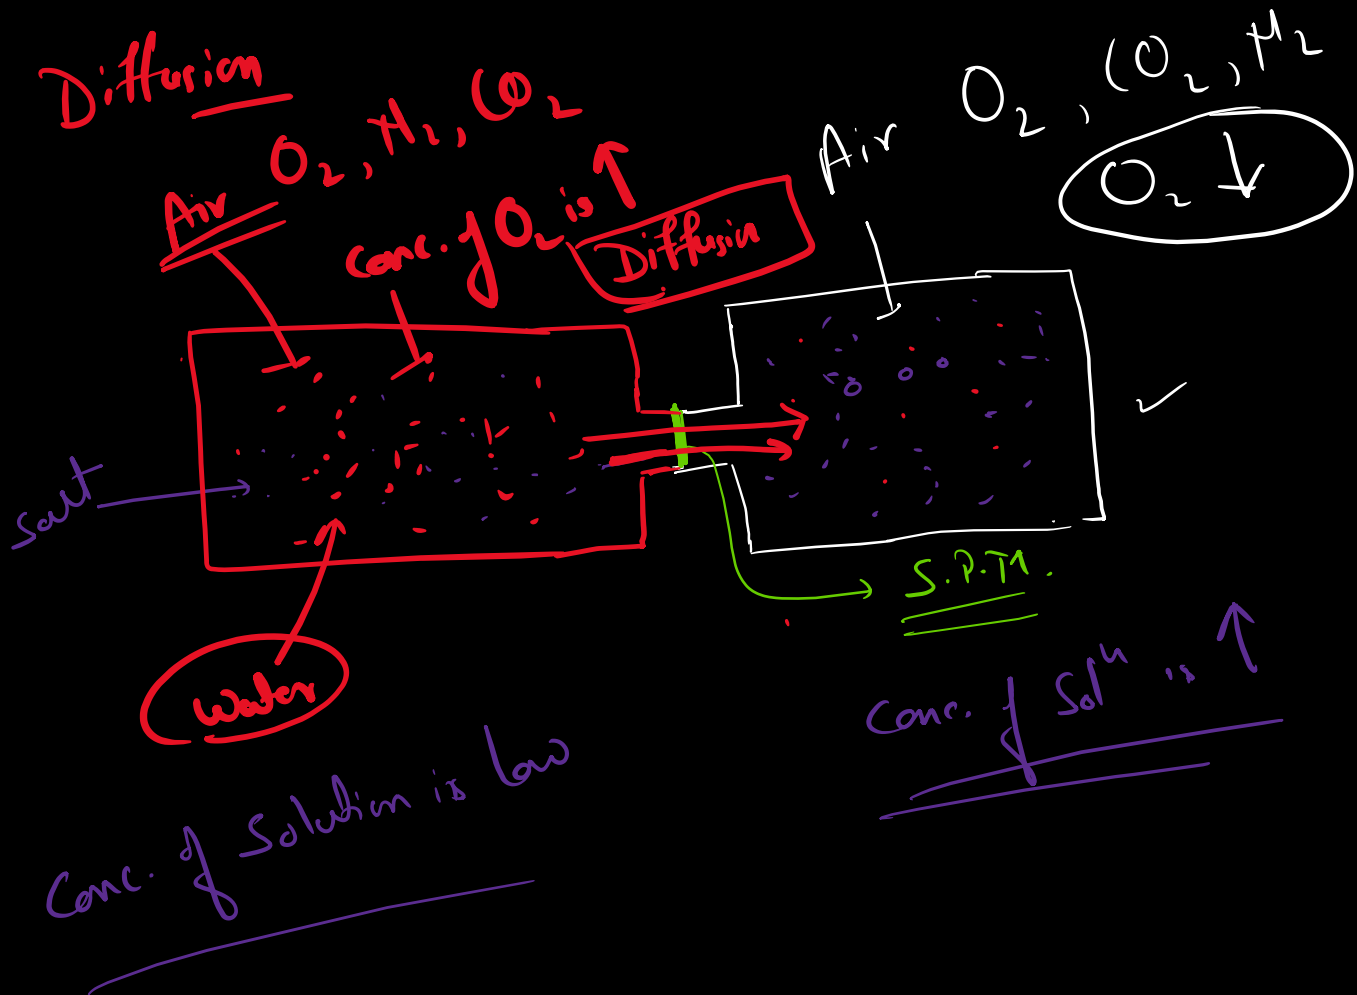 Diffusion
O₂, N₂, CO₂
Air
Conc. of O₂ is ↑
Diffusion
Air
O₂, CO₂, N₂
O₂ ↓
Salt
S.P.M.
Water
Conc. of Solⁿ is ↑
Conc. of Solution is low